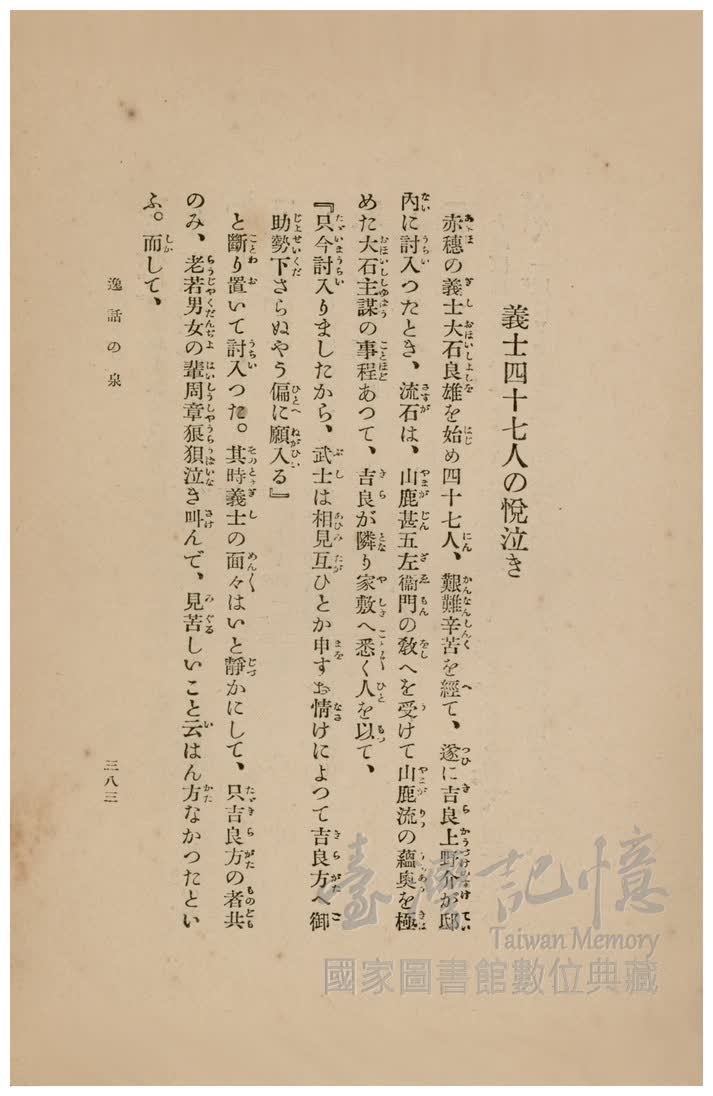 義士四十七人の悅泣き
赤穗の義士大石良雄を始め四十七人、艱難辛苦を經て、遂に吉良上野介が邸
內に討入つたとき、流石は、山鹿甚五左衞門の敎へを受けて山鹿流の蘊奧を極
めた大石主謀の事程あつて、吉良が隣り家敷へ悉く人を以て、
『只今討入りましたから、武士は相見互ひとか申すお情けによつて吉良方へ御
助勢下さらぬやう偏に願入る』
と斷り置いて討入つた。其時義士の面々はいと靜かにして、只吉良方の者共
のみ、老若男女の輩周章狼狽泣き叫んで、見苦しいこと云はん方なかつたとい
ふ。而して、
逸話の泉
三八三
臺灣記憶
Taiwan Memory
國家圖書館數位典藏